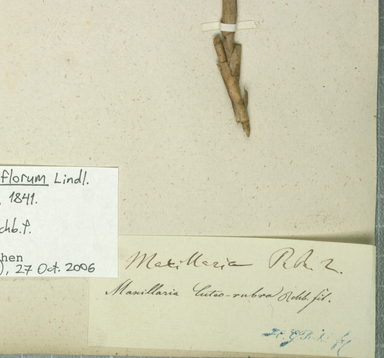 florum Lindl.
, 1841.
chb.f.
hen
), 27 Oct. 2006
Maxillaria R. &
Maxillaria luteo-rubra Rchb. fil.